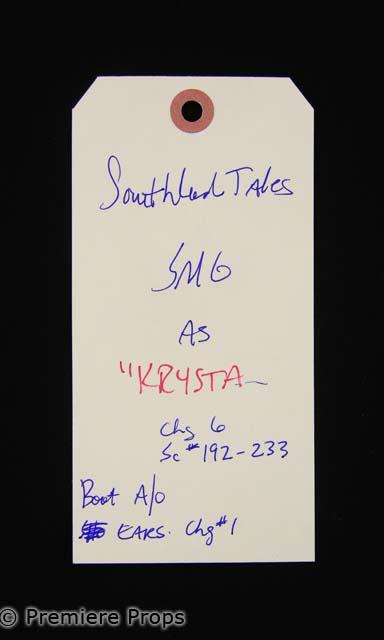 Southland Tales
SMG
As
"KRYSTA
Chg 6
Sc# 192-233
Boot A/O
EARS. Chg #1
© Premiere Props